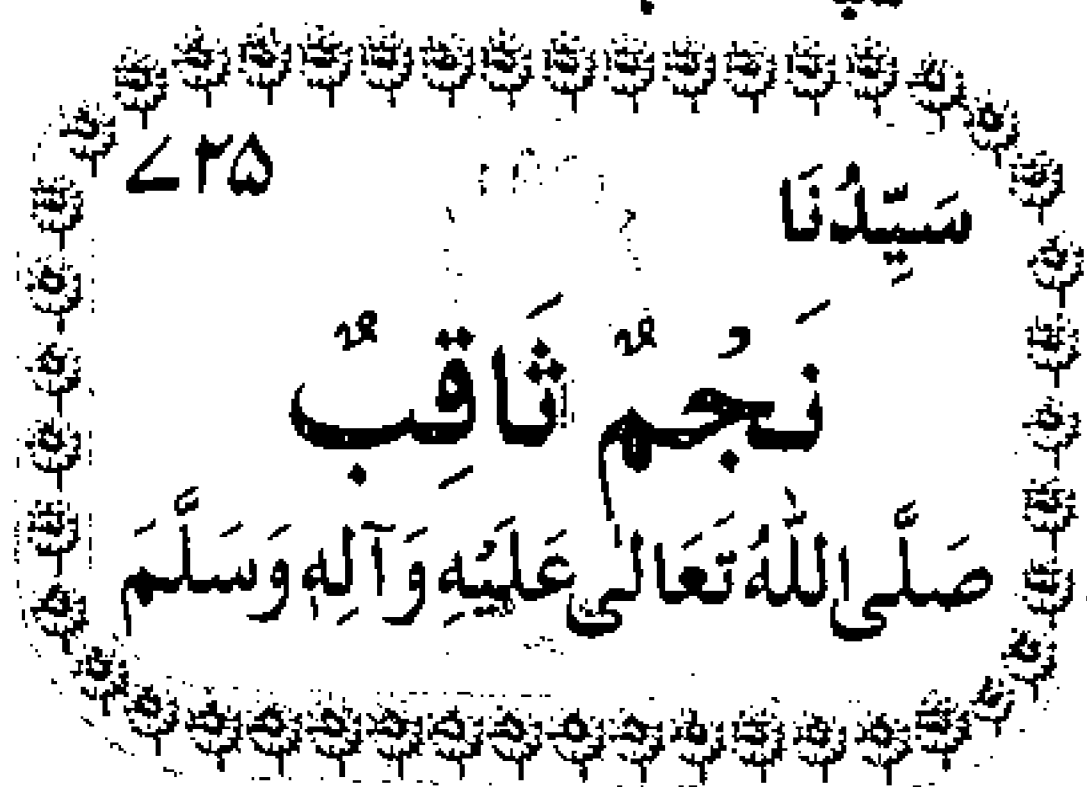 ۷۲۵
سَيِّدُنَا
نَجْمٌ ثَاقِبٌ
صَلَّى اللّٰهُ تَعَالٰى عَلَيْهِ وَآلِهٖ وَسَلَّمَ